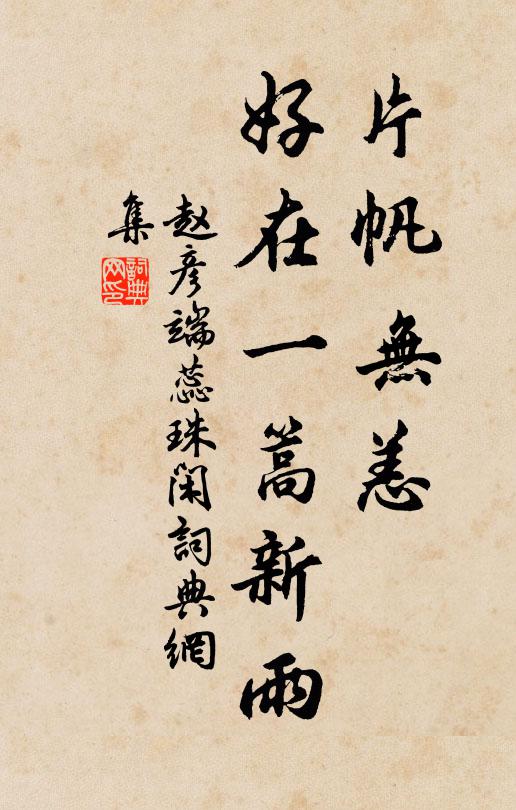 片帆無恙
好在一篙新雨
赵彦端蕊珠闲詞典網
集
詞典网印